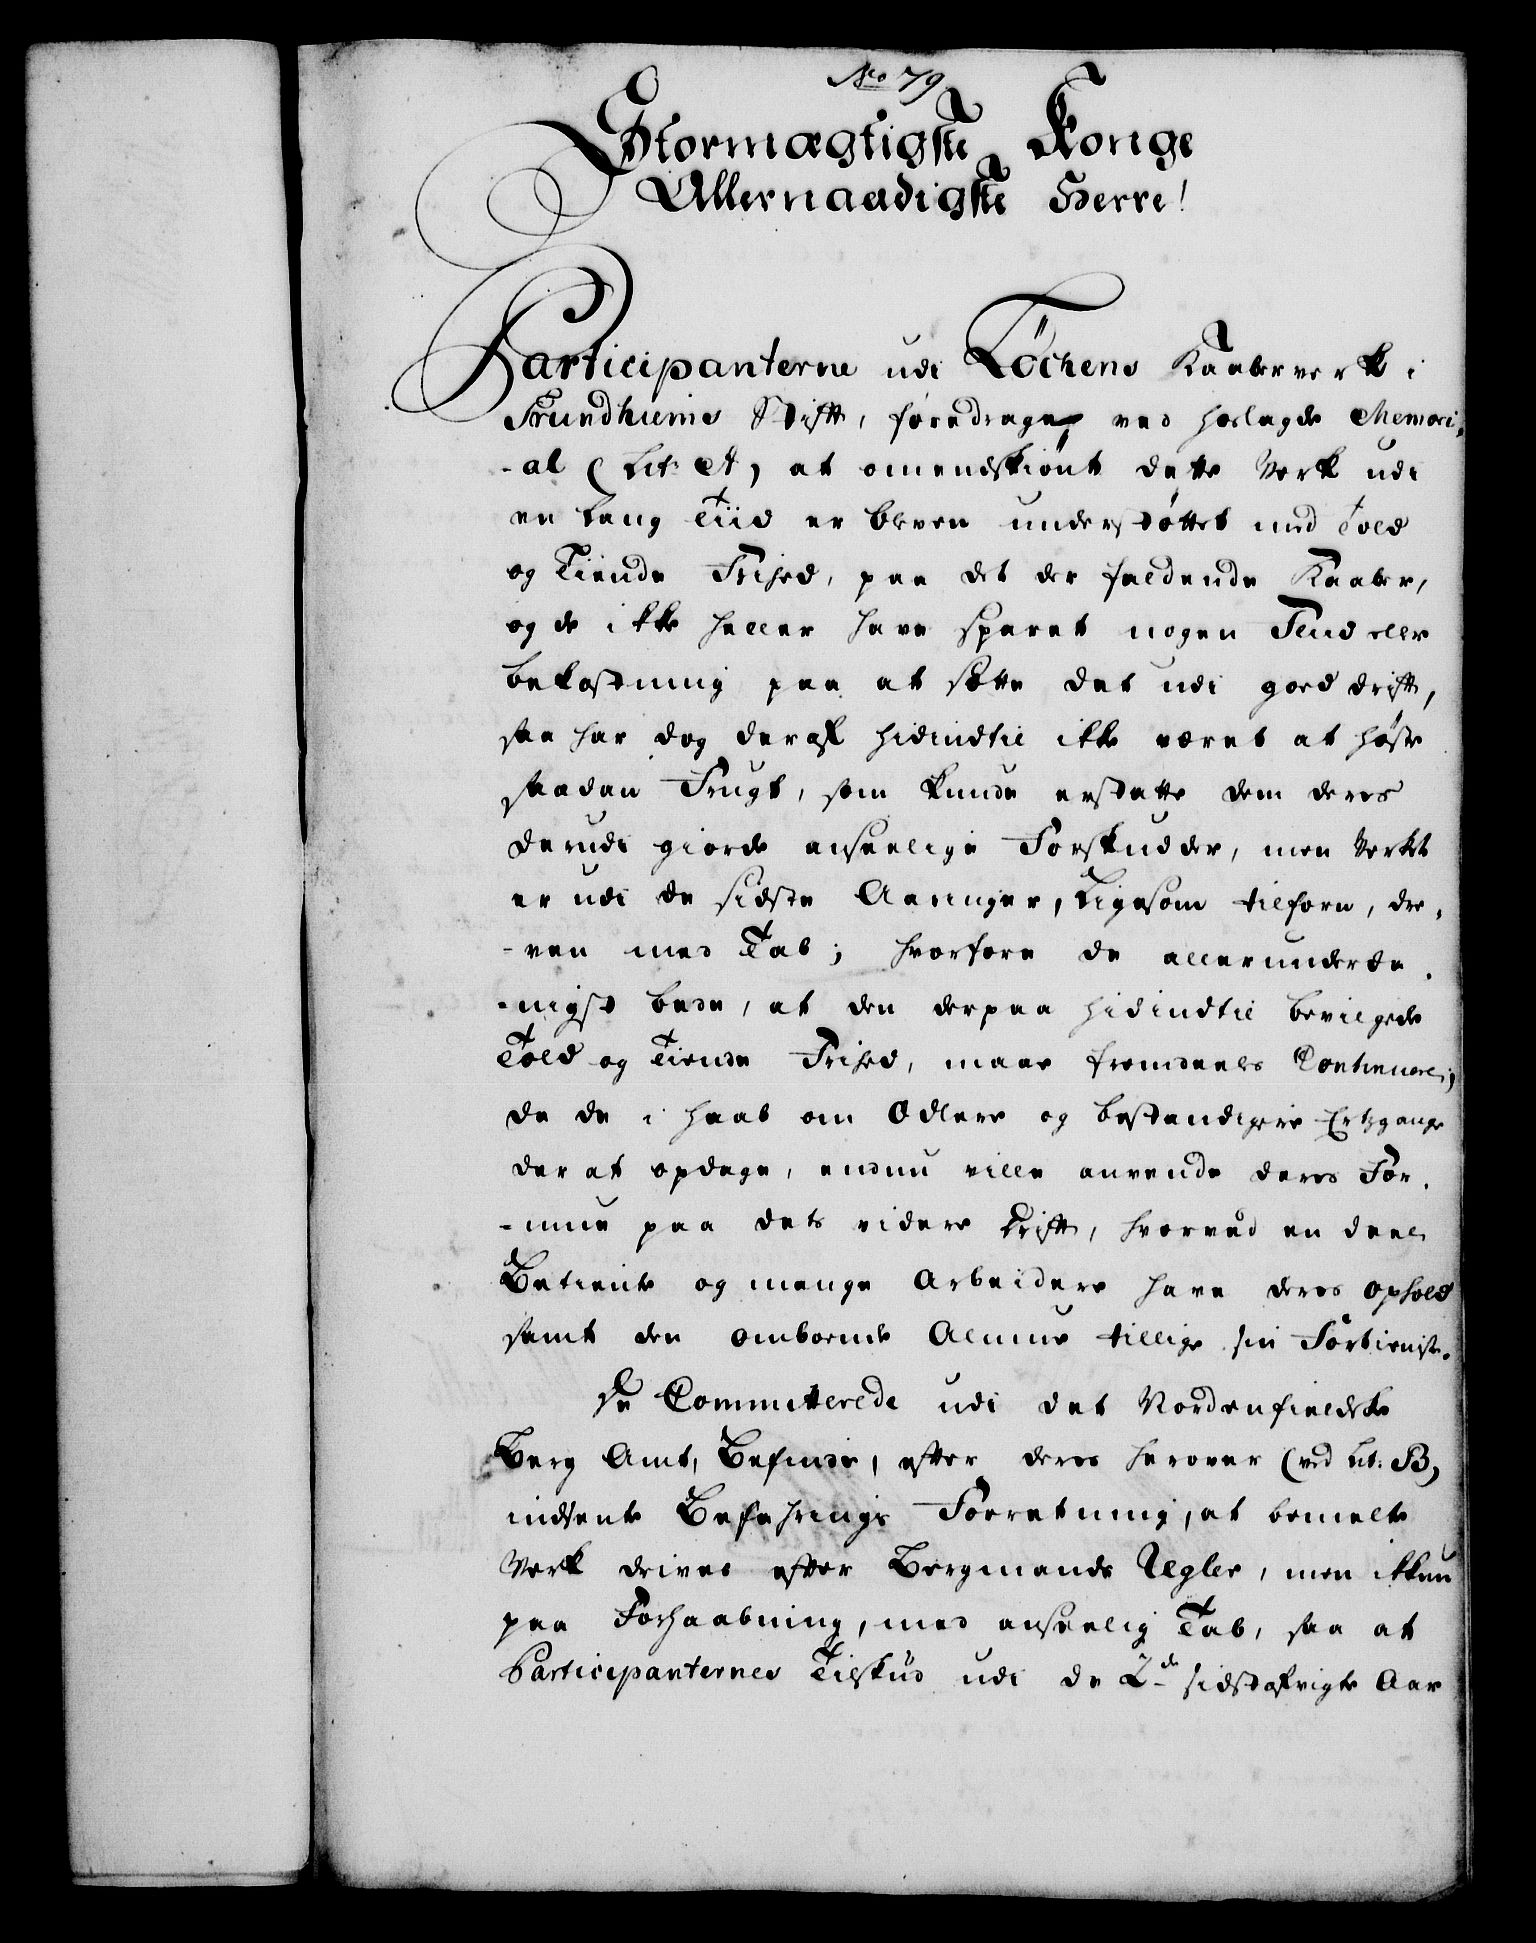 No 79
Stormægtigste Konge
Allernaadigste Herre!
Participanterne udi Løckens Kaaberverk i
Trundhiems Stift, foredrager ved hoslagde Memori-
-al (Lit: A) at omendskiønt dette Verk udi
en lang Tiid er bleven understøttet med Told
og Tiende Frihed, paa det der faldende Kaaber,
og de ikke heller have sparet nogen Fliid eller
bekostning paa at sætte det udi goed drift,
saa har dog deraf hidindtil ikke været at høste
saadan Frugt, som kunde erstatte dem deres
derudi giorde anseelige Forskudder, men Verket
er udi de sidste Aaringer, ligesom tilforn, dre-
-ven med Tab; hvorfore de allerunderda-
-nigst bede, at den derpaa hidindtil bevilgede
Told og Tiende Frihed, maae fremdeeles Continuere;
da de i haab om Ædlere og bestandigere Ertzgange
der at opdage, endnu ville anvende deres For-
-mue paa dets videre Drift, hvorved en deel
Betiente og mange Arbeidere have deres ophold
samt den omboende Almue tillige sin Fortieniste.
De Committerede udi det Nordenfieldske
Berg Amt, Befinde, efter deres herover (ved Lit: B,)
indsente Befahrings Forretning, at bemelte
Verk drives efter Bergmands Regler, men ikkun
paa Forhaabning, med anseelig Tab, saa at
Participanternes Tilskud udi de 2de sidstafvigte Aar